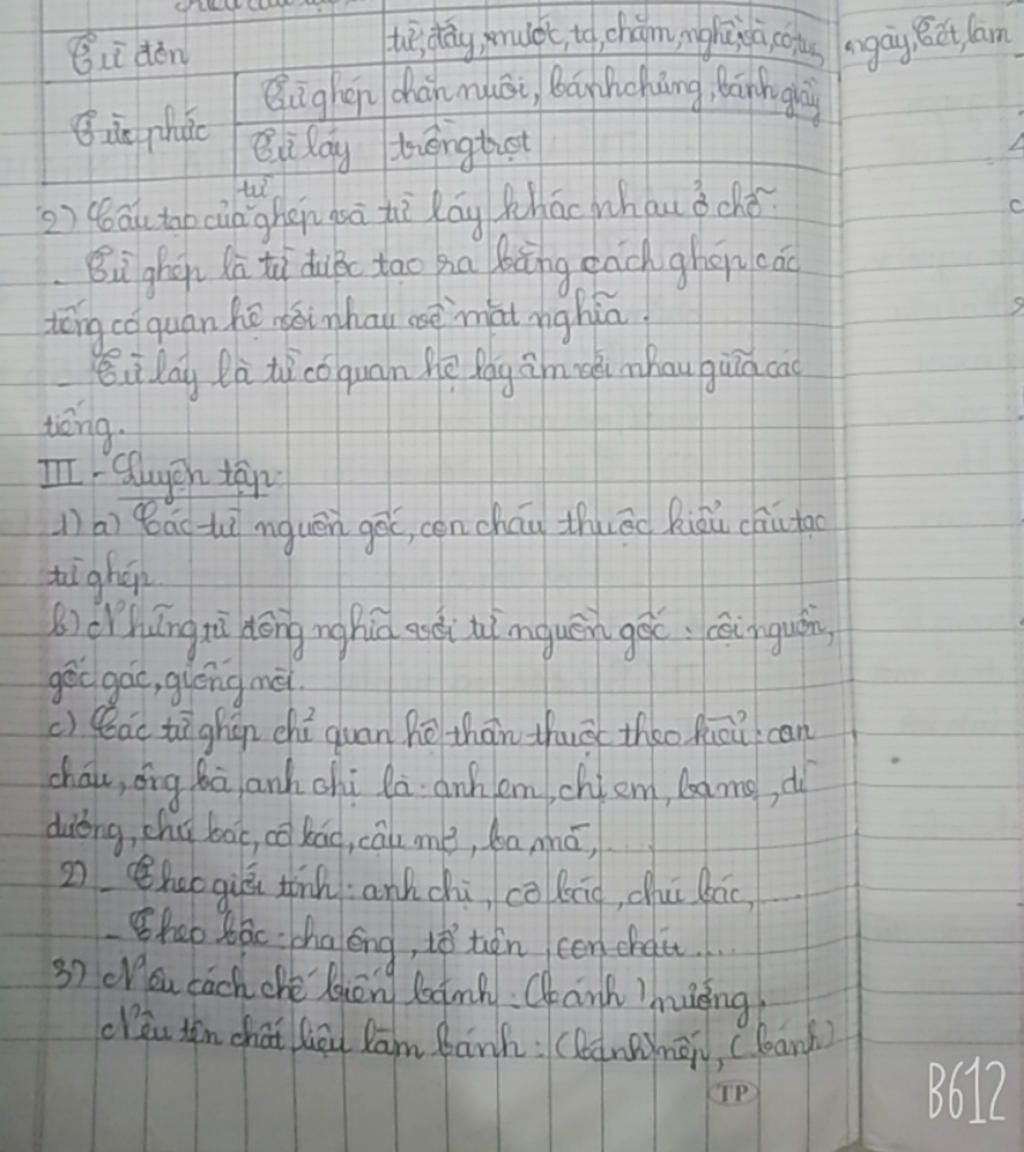 Từ đơn từ, đấy, nước, ta, chăm, nghề, và, có, tục, ngày, Tết, làm
Từ phức Từ ghép chăn nuôi, bánh chưng, bánh giầy
Từ láy trồng trọt
từ
2) Cấu tạo của ghép và từ láy khác nhau ở chỗ:
- Từ ghép là từ được tạo ra bằng cách ghép các
tiếng có quan hệ với nhau về mặt nghĩa.
- Từ láy là từ có quan hệ láy âm với nhau giữa các
tiếng.
III - Luyện tập:
1) a) Các từ nguồn gốc, con cháu thuộc kiểu cấu tạo
từ ghép.
b) Những từ đồng nghĩa với từ nguồn gốc: cội nguồn,
gốc gác, giống nòi.
c) Các từ ghép chỉ quan hệ thân thuộc theo kiểu: con
cháu, ông bà, anh chị là: anh em, chị em, ba mẹ, dì
dượng, chú bác, cô bác, cậu mợ, ba má,...
2) - Theo giới tính: anh chị, cô bác, chú bác,...
- Theo bậc: cha ông, tổ tiên, con cháu....
3) Nêu cách chế biến bánh: (bánh) nướng.
Nêu tên chất liệu làm bánh: (bánh) nếp, (bánh)
TP
B612